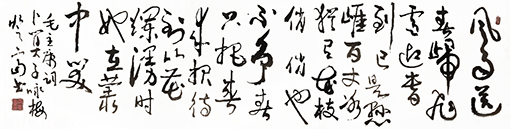 風雨送
春歸飛
雪迎春
到已是懸
崖百丈冰
猶有花枝
俏俏也
不争春
只把春
来报待
到山花
爛漫时
她在叢
中笑
毛主席词
卜算子咏梅
书